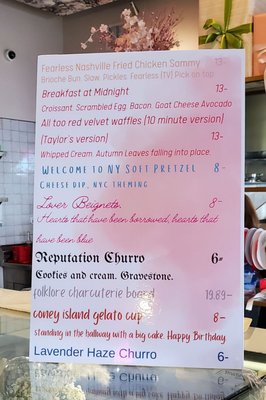 Fearless Nashville Fried Chicken Sammy 13-
Brioche Bun. Slaw. Pickles. Fearless (TV) Pick on top
Breakfast at Midnight 13-
Croissant. Scrambled Egg. Bacon. Goat Cheese Avocado
All too red velvet waffles (10 minute version)
(Taylor's version) 13-
Whipped Cream. Autumn Leaves falling into place.
Welcome to NY Soft Pretzel 8-
Cheese dip, NYC theming
Lover Beignets. 8-
Hearts that have been borrowed, hearts that
have been blue
Reputation Churro 6-
Cookies and cream. Gravestone.
folklore charcuterie board 19.89-
coney island gelato cup 8-
standing in the hallway with a big cake. Happy Birthday
Lavender Haze Churro 6-